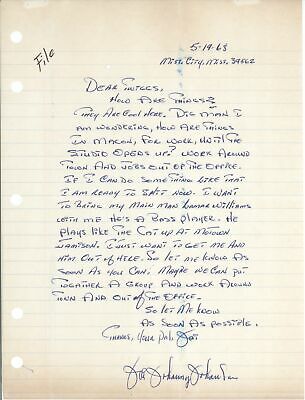 File
5-19-68
Miss. City, Miss. 39562
Dear Twiggs,
How are things?
They are cool here. Dig man I
am wondering, how are things
in Macon, for work, until the
studio opens up? Work around
town and jobs out of the office.
If I can do something like that
I am ready to split now. I want
to bring my main man Lamar Williams
with me he's a bass player. He
plays like the cat up at Motown
Jamison. I just want to get me and
him out of here. So let me know as
soon as you can. Maybe we can put
together a group and work around
town and out of the office.
So let me know
as soon as possible.
Thanks, your pal, Jai
Jai Johanny Johanson